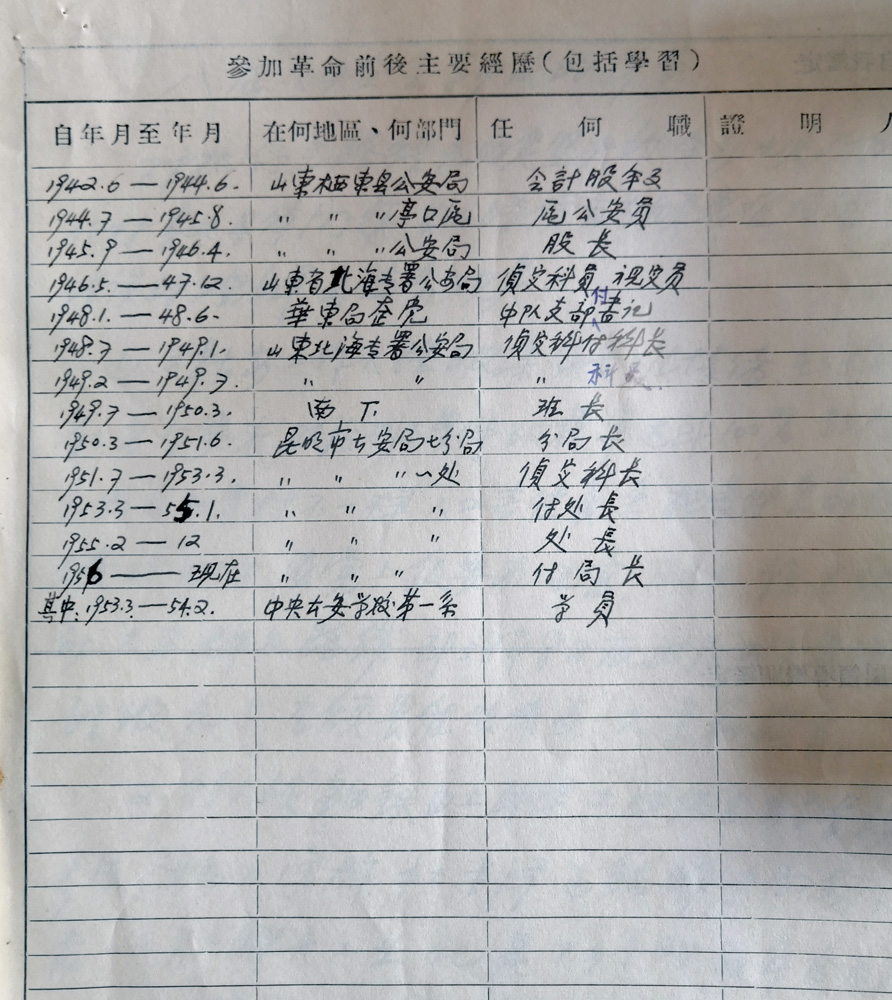 參加革命前後主要經歷（包括學習）
自年月至年月 在何地區、何部門 任何職 證明
1942.6 — 1944.6. 山東栖東县公安局 会計股
1944.7 — 1945.8. 〃 〃 〃亭口区 区公安員
1945.9 — 1946.4. 〃 〃 〃公安局 股長
1946.5. — 47.12 山東省北海专署公安局 偵交科員
1948.1. — 48.6. 華東局 中队支部付書记
1948.7 — 1949.1. 山東北海专署公安局 偵交科付科長
1949.2 — 1949.7. 〃 〃 〃 科長
1949.7 — 1950.3. 南下 班長
1950.3 — 1951.6. 昆明市公安局七分局 分局長
1951.7 — 1953.3. 〃 〃 〃一处 偵交科長
1953.3 — 55.1. 〃 〃 〃 付处長
1955.2 — 12 〃 〃 〃 处長
1956 — 现在 〃 〃 〃 付局長
其中:1953.3 — 54.2. 中央公安学校第一系 学員